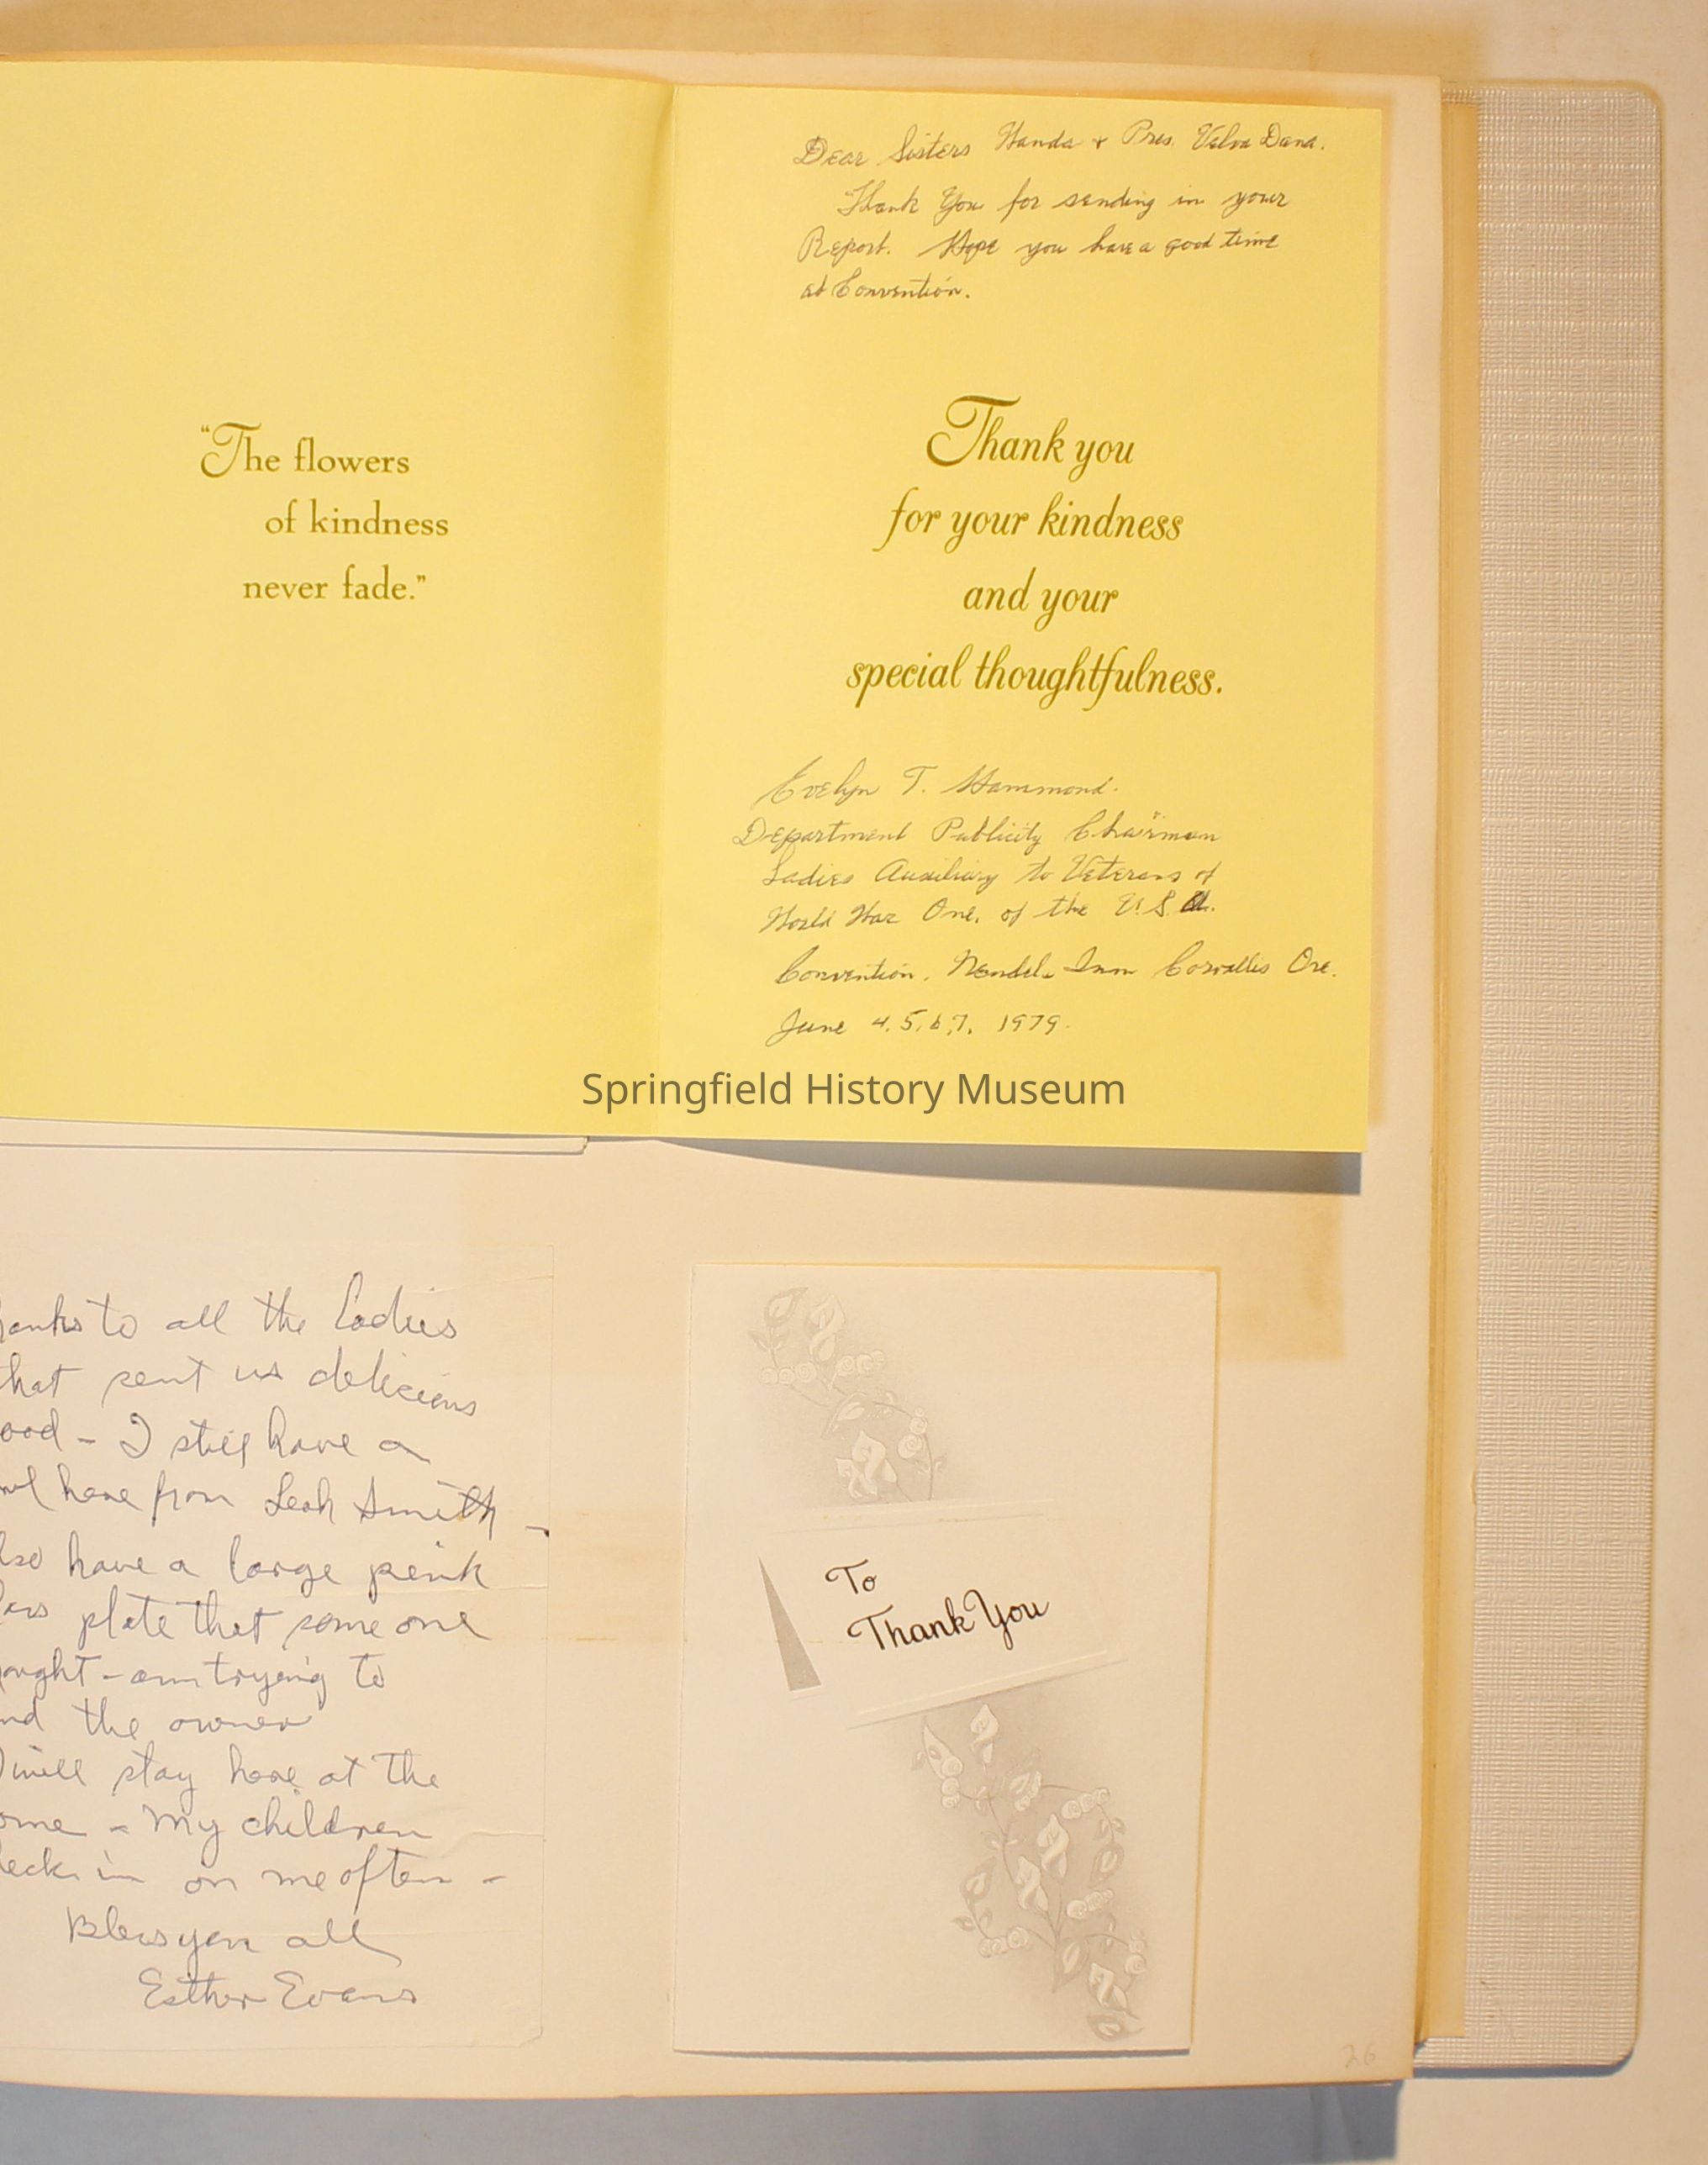 "The flowers
of kindness
never fade."
Dear Sisters Wanda & Pres. Velva Dana.
Thank You for sending in your
Report. Hope you have a good time
at Convention.
Thank you
for your kindness
and your
special thoughtfulness.
Evelyn T. Hammond.
Department Publicity Chairman
Ladies Auxiliary to Veterans of
World War One, of the U.S.A.
Convention, Nendels Inn Corvallis Ore.
June 4,5,6,7, 1979.
Springfield History Museum
to all the Ladies
that sent us delicious
- I still have a
here from Leah Smith -
have a large pink
plate that some one
- am trying to
the owner
will stay here at the
- My children
in on me often -
Bless you all
Esther Evans
To
Thank You
26